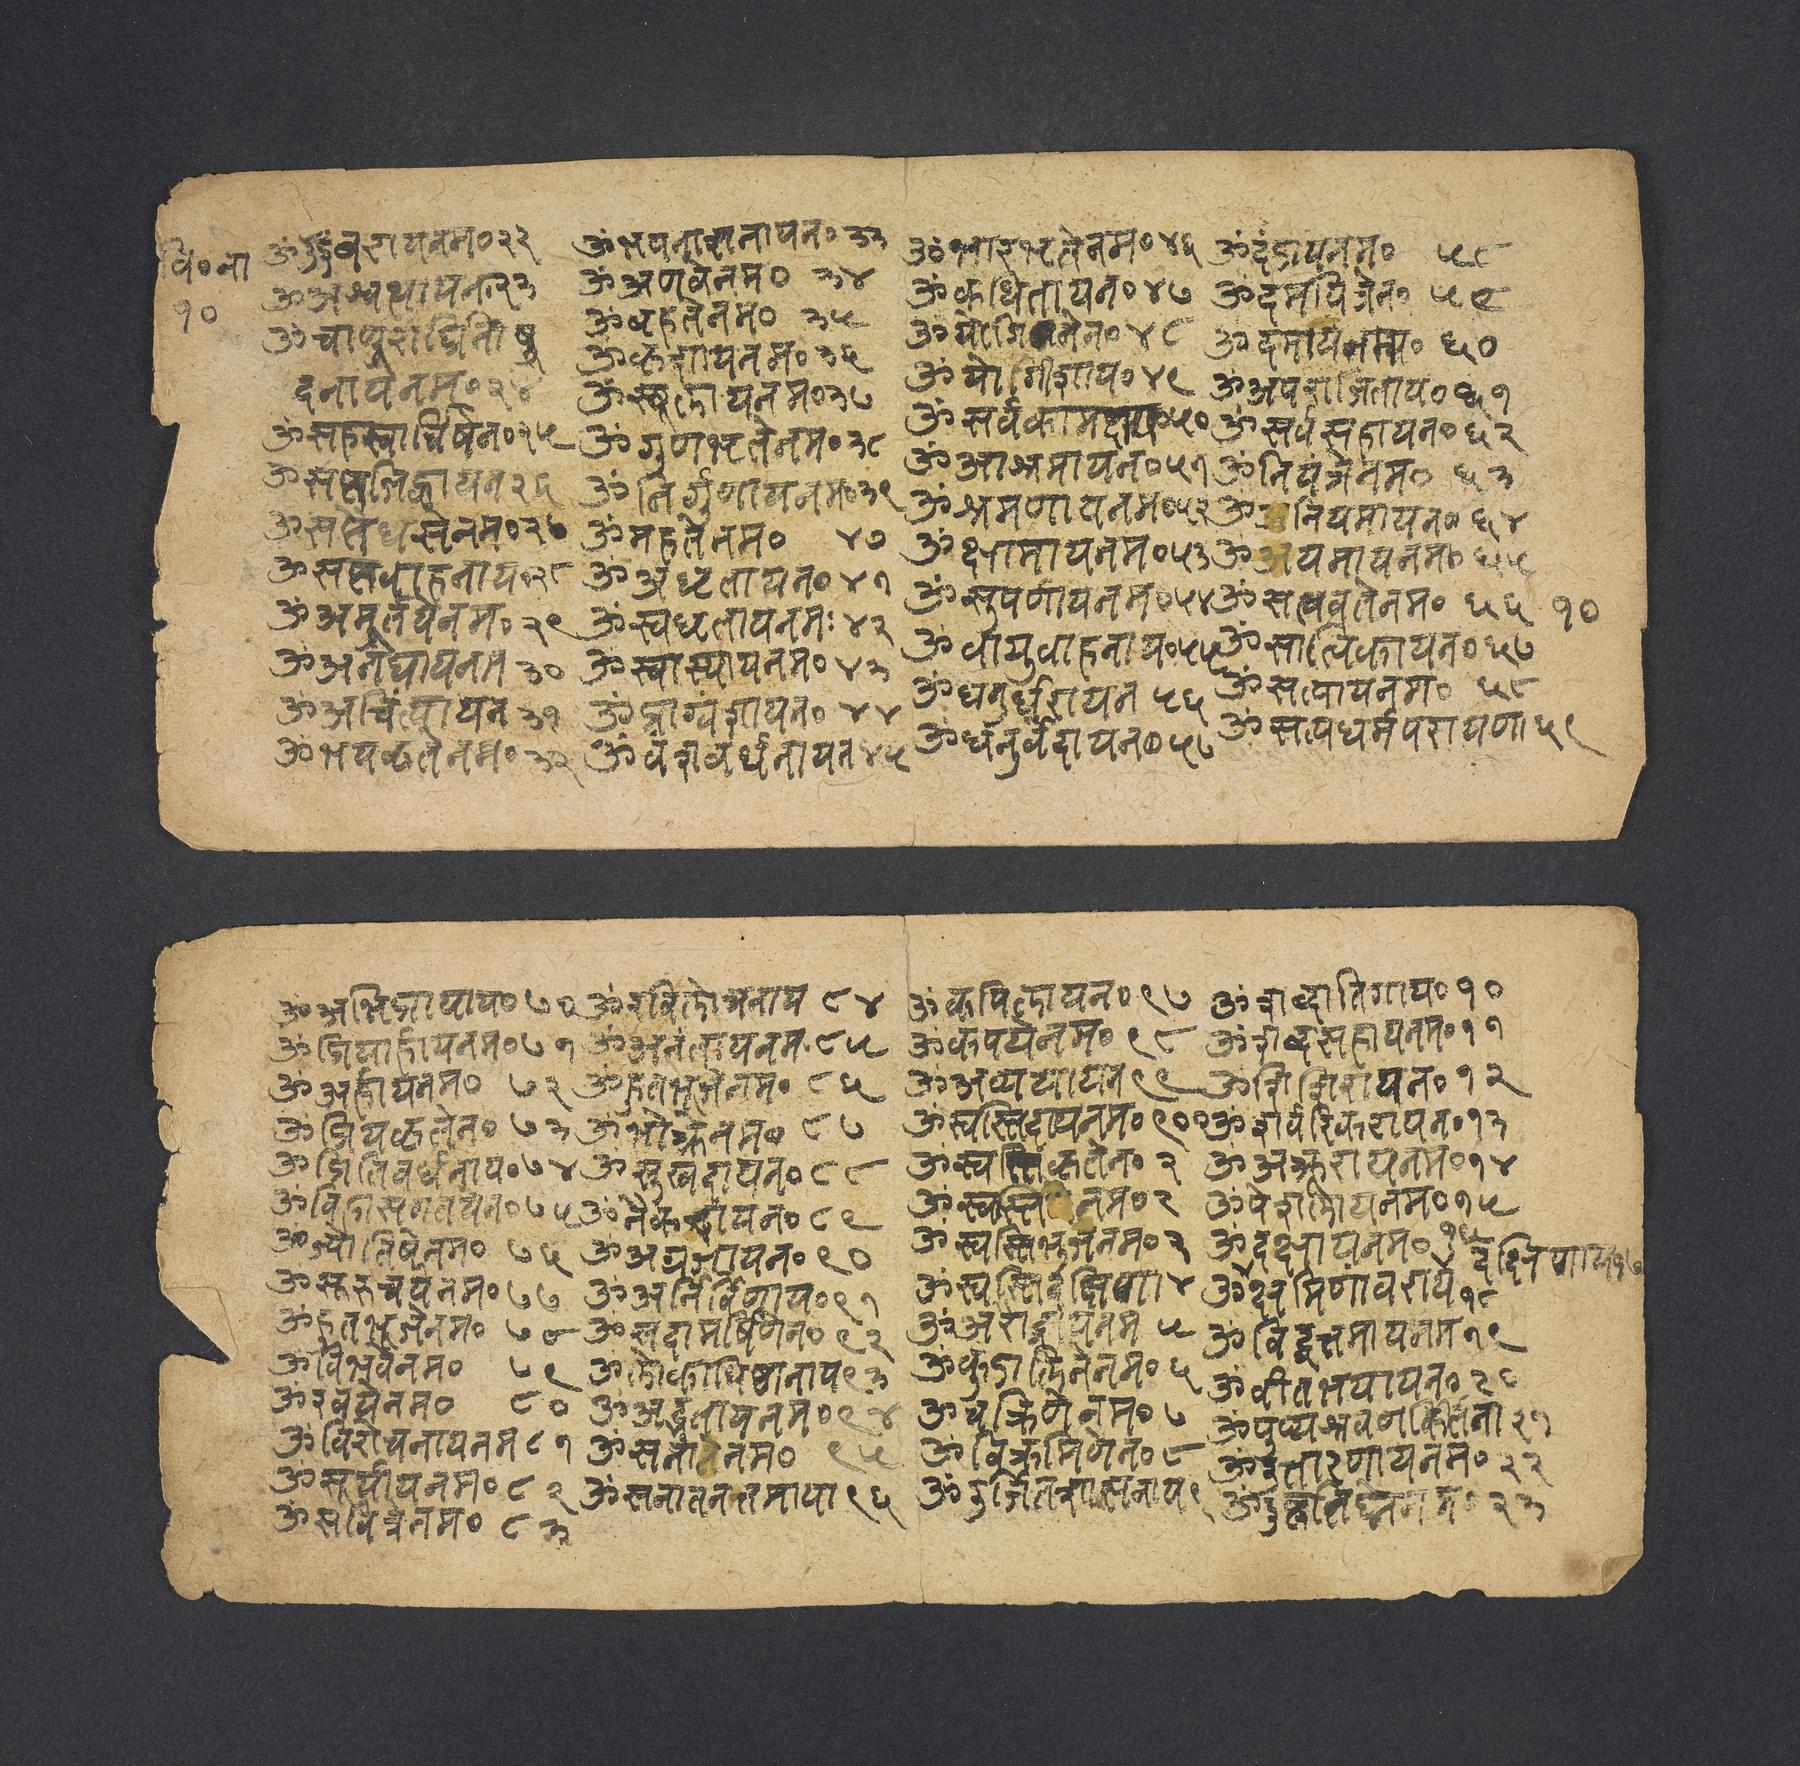 वि॰ना
१०
ॐउदुंबरायनम॰२२
ॐअश्वत्थायन॰२३
ॐचाणूरांध्रनिषु
दनायनम॰२४
ॐसहस्त्रार्चिषेन॰२५
ॐसप्तजिह्वायन२६
ॐसप्तैधसेनम॰२७
ॐसप्तवाहनाय॰२८
ॐअमूर्तयेनम॰२९
ॐअनघायनम ३०
ॐअचिंत्यायन ३१
ॐभयकृतेनम॰३२
ॐभयनाशनायन॰३३
ॐअणवेनम॰ ३४
ॐबृहतेनम॰ ३५
ॐकृशायनम॰३६
ॐस्थूलायनम॰३७
ॐगुणभृतेनम॰३८
ॐनिर्गुणायनम॰३९
ॐमहतेनम॰ ४०
ॐअधृतायन॰४१
ॐस्वधृतायनमः४२
ॐस्वास्यायनम॰४३
ॐप्राग्वंशायन॰४४
ॐवंशवर्धनायन४५
ॐभारभृतेनम॰४६
ॐकथितायन॰४७
ॐयोगिनेन॰४८
ॐयोगीशाय॰४९
ॐसर्वकामदाय॰५०
ॐआश्रमायन॰५१
ॐश्रमणायनम॰५२
ॐक्षामायनम॰५३
ॐसुपर्णायनम॰५४
ॐवायुवाहनाय॰५५
ॐधनुर्धरायन ५६
ॐधनुर्वेदायन॰५७
ॐदंडायनम॰ ५८
ॐदमयित्रेन॰ ५९
ॐदमायनम॰ ६०
ॐअपराजिताय॰६१
ॐसर्वसहायन॰६२
ॐनियंत्रेनम॰ ६३
ॐअनियमायन॰६४
ॐअयमायनम॰६५
ॐसत्ववतेनम॰ ६६ १०
ॐसात्विकायन॰६७
ॐसत्यायनम॰ ६८
ॐसत्यधर्मपरायणा६९
ॐअभिप्रायाय॰७०
ॐप्रियार्हायनम॰७१
ॐअर्हायनम॰ ७२
ॐप्रियकृतेन॰ ७३
ॐप्रितिवर्धनाय॰७४
ॐविहासगतयेन॰७५
ॐज्योतिषेनम॰ ७६
ॐसुरुचयेनम॰७७
ॐहुतभुजेनम॰ ७८
ॐविभवेनम॰ ७९
ॐरवयेनम॰ ८०
ॐविरोचनायनम८१
ॐसूर्यायनम॰८२
ॐसवित्रेनम॰ ८३
ॐरविलोचनाय ८४
ॐअनंतायनम॰८५
ॐहुतभुजेनम॰ ८६
ॐभोक्त्रेनम॰ ८७
ॐसुखदायन॰८८
ॐनैकदायन॰ ८९
ॐअग्रजायन॰९०
ॐअनिर्विणाय॰९१
ॐसदामर्षिणेन॰९२
ॐलोकाधिष्ठानाय९३
ॐअद्भुतायनम॰९४
ॐसनातेनम॰ ९५
ॐसनातनतमाया९६
ॐकपिलायन॰९७
ॐकपयेनम॰ ९८
ॐअव्ययायन९९
ॐस्वस्तिदायनम॰१००
ॐस्वस्तिकृतेन॰ २
ॐस्वस्तिनम॰२
ॐस्वस्तिभुजेनम॰३
ॐस्वस्तिदक्षिणा४
ॐअरौद्रायनम ५
ॐकुंडलिनेनम॰६
ॐचक्रिणेनम॰७
ॐविक्रमिणेन॰८
ॐउर्जितशासनाय९
ॐशब्दातिगाय॰१०
ॐशब्दसहायनम॰११
ॐशिशिरायन॰१२
ॐशर्वरिकरायन॰१३
ॐअक्रूरायनम॰१४
ॐपेशलायनम॰१५
ॐदक्षायनम॰१६
दक्षिणाय१७
ॐक्षमिणांवराये१८
ॐविद्वत्तमायनम१९
ॐवीतभयायन॰२०
ॐपुण्यश्रवणकिर्तना२१
ॐउत्तारणायनम॰२२
ॐदुष्कृतिघ्नेनम॰२३